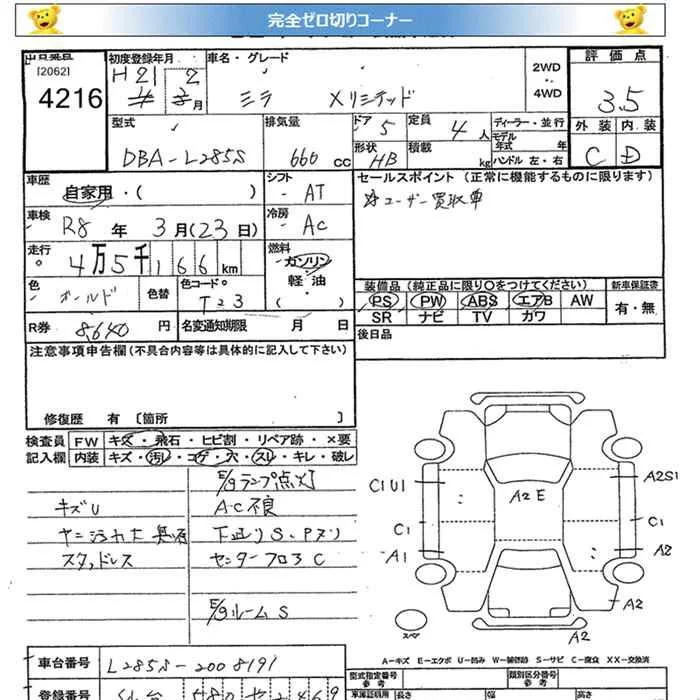 完全ゼロ切りコーナー
[2062]
4216
初度登録年月
H21 2月
車名・グレード
ミラ Xリミテッド
2WD
・
4WD
評価点
3.5
型式
DBA-L285S
排気量
660 CC
ドア 5
定員 4 人
形状 HB
積載 kg
ディーラー・並行
モデル年式 年
ハンドル 左・右
外装 内装
C D
車歴
自家用・( )
シフト
AT
セールスポイント (正常に機能するものに限ります)
ユーザー買取車
車検
R8 年 3月(23日)
冷房
AC
走行
4万5千166km
燃料
ガソリン
軽油
色
ゴールド
色替
色コード
T23
装備品(純正品に限り○をつけてください)
新車保証書
PS PW ABS エアB AW
SR ナビ TV カワ
有・無
R券 8640 円
名変通知期限 月 日
後日品
注意事項申告欄(不具合内容等は具体的に記入して下さい)
修復歴 有 〔箇所 〕
検査員
記入欄
FW キズ・飛石・ヒビ割・リペア跡・×要
内装 キズ・汚れ・コゲ・穴・スレ・キレ・破レ
E/gランプ点灯
キズU
A-C不良
スタッドレス
センターフロアC
E/gルームS
C1U1
C1
A1
A2E
A2S1
C1
A2
A2
A2
スペア
A-キズ E-エクボ U-凹み W-補修跡 S-サビ C-腐食 XX-交換済
車台番号
L285S-2008191
型式指定番号
参考
類別区分番号
参考
登録番号
仙台 480 セ 2469
長さ
幅
高さ